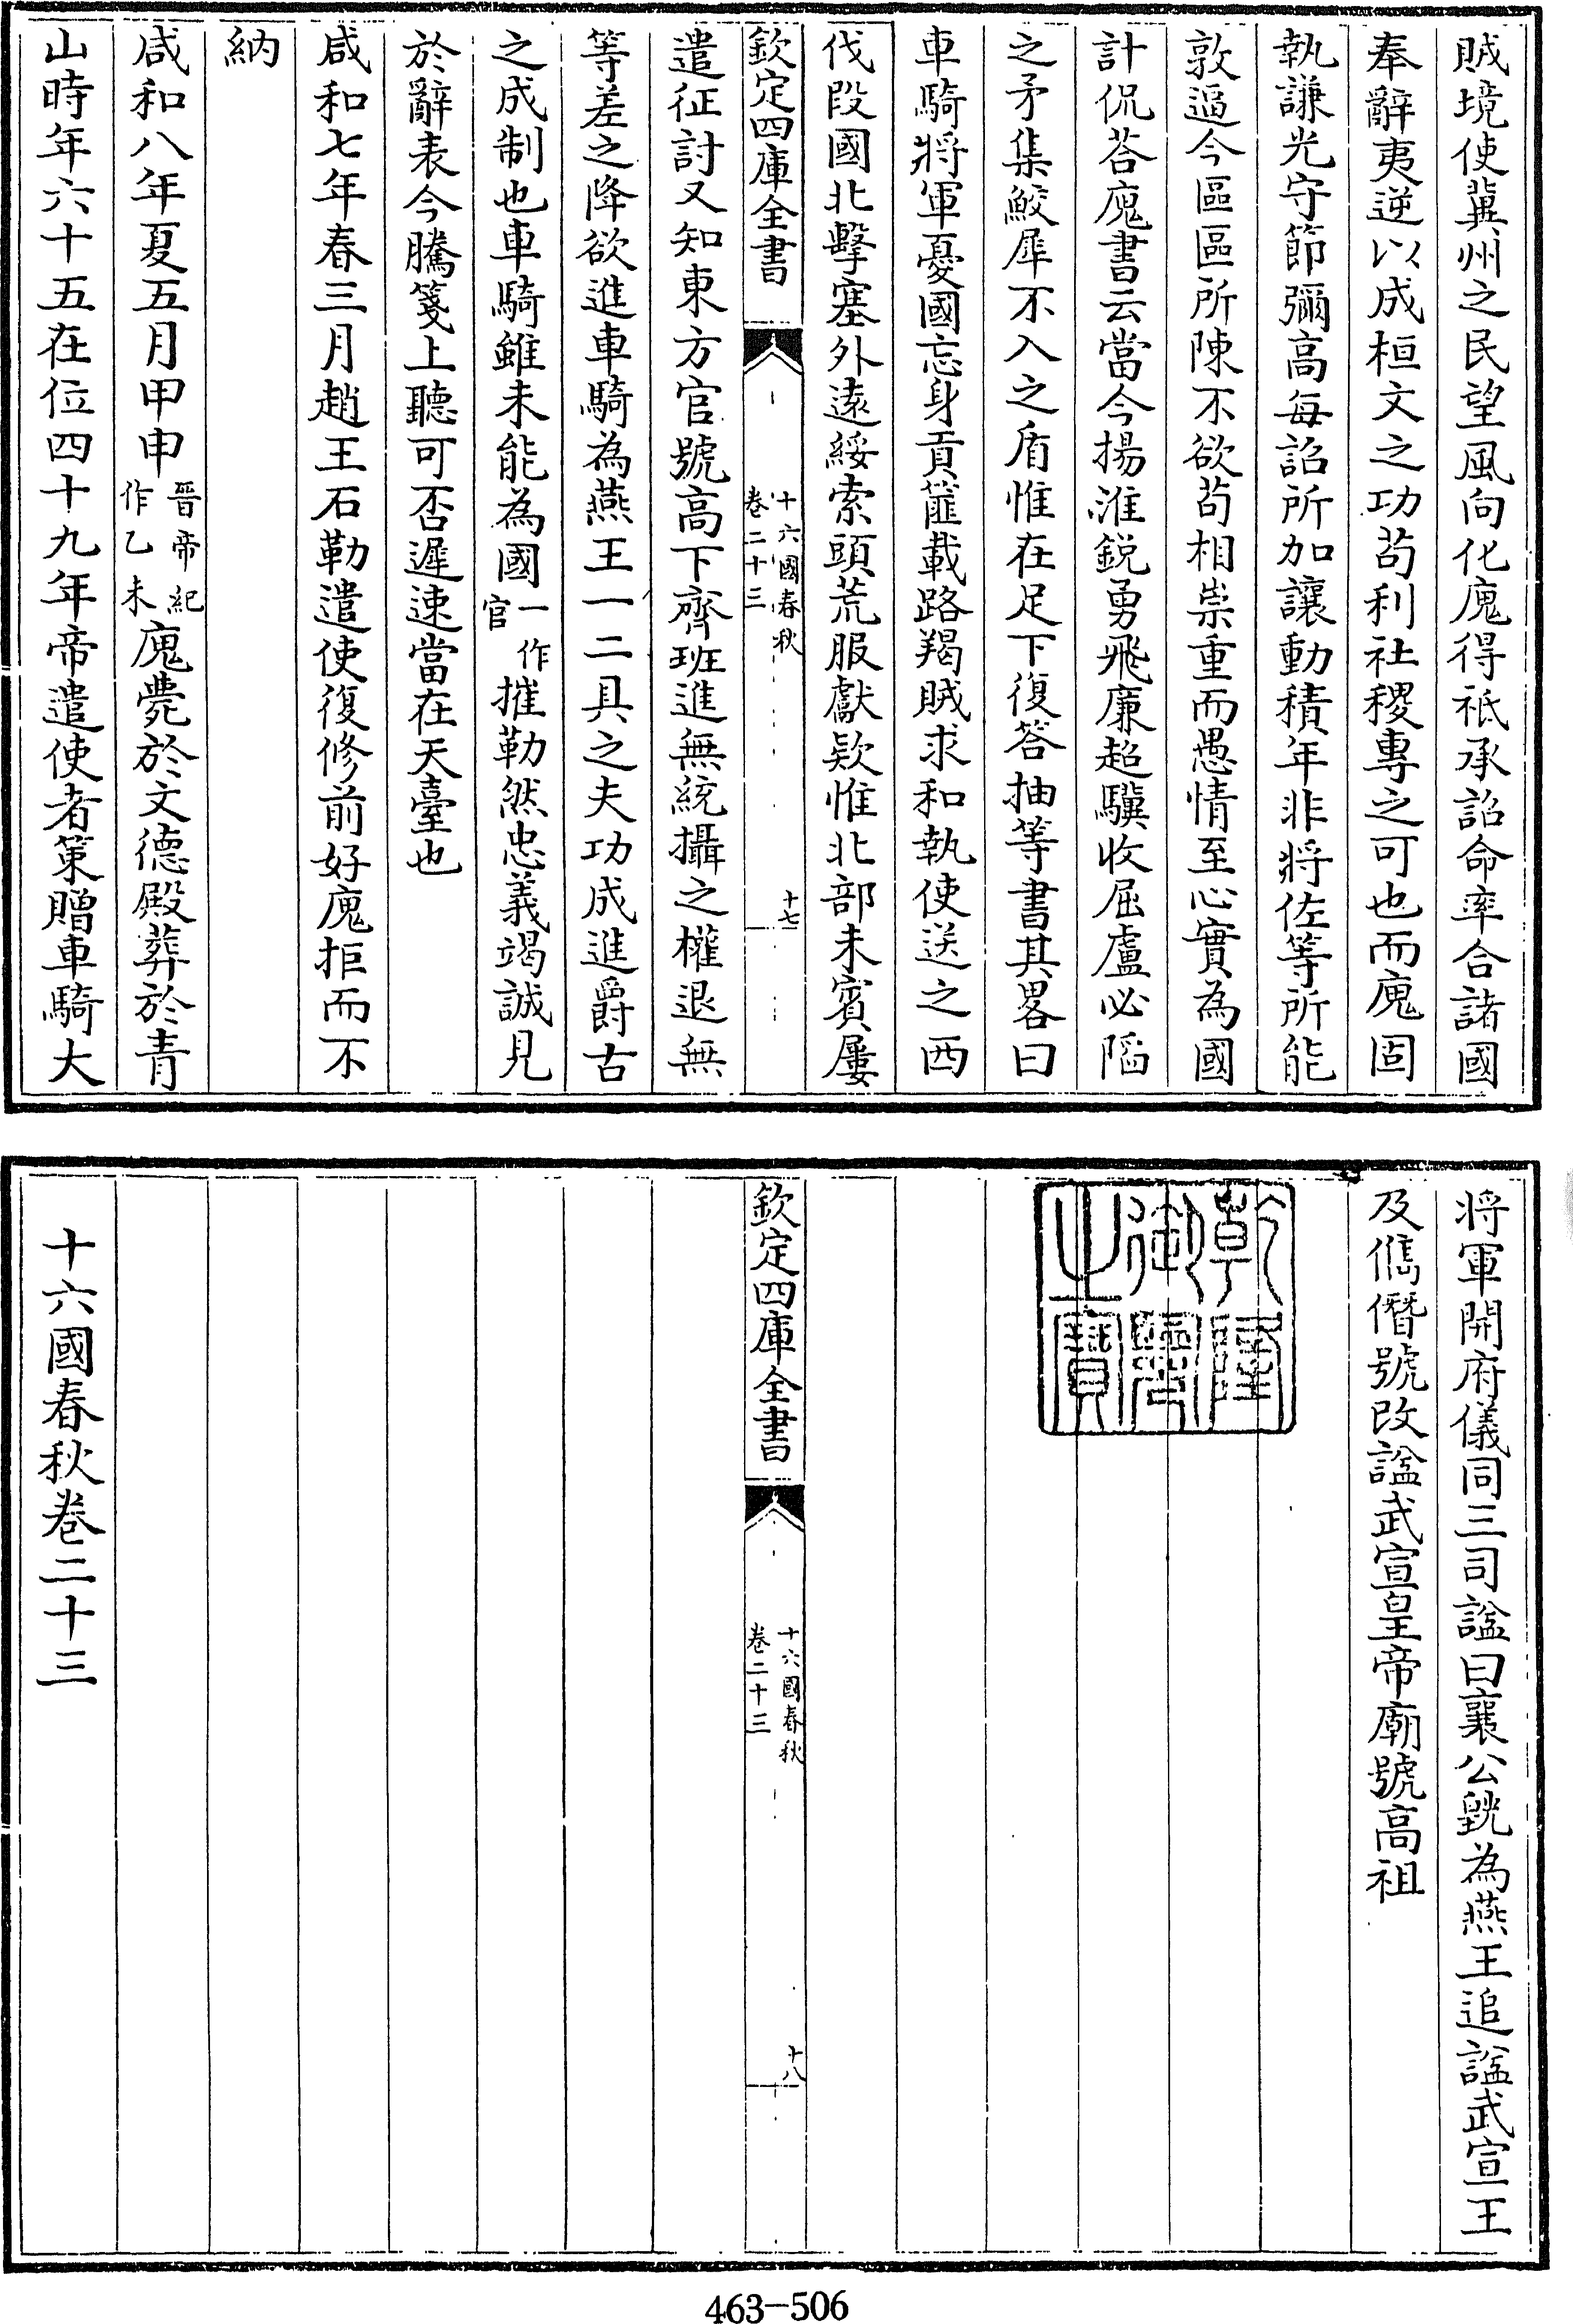 賊境使冀州之民望風向化廆得祗承詔命率合諸國
奉辭夷逆以成桓文之功苟利社稷專之可也而廆固
執謙光守節彌高每詔所加讓動積年非將佐等所能
敦逼今區區所陳不欲苟相崇重而愚情至心實為國
計侃荅廆書云當今揚淮鋭勇飛廉超驥收屈盧必陷
之矛集鮫犀不入之盾惟在足下復答抽等書其畧曰
車騎將軍憂國忘身貢篚載路羯賊求和執使送之西
伐段國北擊塞外遠綏索頭荒服獻欵惟北部未賓屢
欽定四庫全書
十六國春秋
卷二十三
十七
遣征討又知東方官號高下齊班進無統攝之權退無
等差之降欲進車騎為燕王一二具之夫功成進爵古
之成制也車騎雖未能為國一作官摧勒然忠義竭誠見
於辭表今騰箋上聽可否遲速當在天臺也
咸和七年春三月趙王石勒遣使復修前好廆拒而不
納
咸和八年夏五月甲申晉帝紀作乙未廆薨於文德殿葬於青
山時年六十五在位四十九年帝遣使者策贈車騎大
將軍開府儀同三司諡曰襄公皝為燕王追諡武宣王
及儁僭號改諡武宣皇帝廟號高祖
乾隆御覽之寶
欽定四庫全書
十六國春秋
卷二十三
十八
十六國春秋卷二十三
463-506